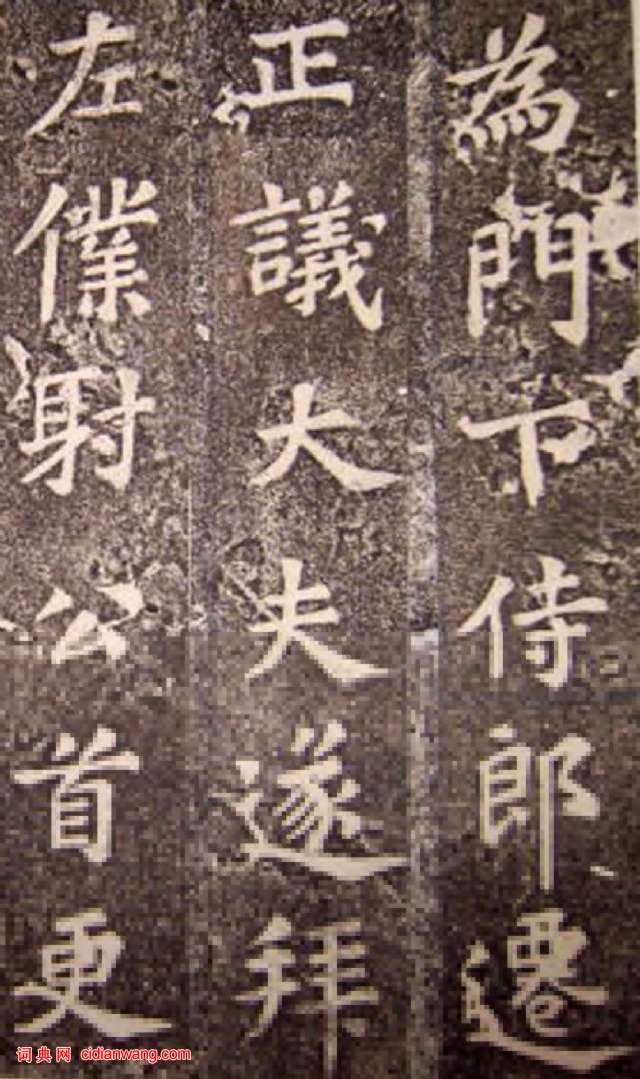 為門下侍郎遷
正議大夫遂拜
左僕射公首更
词典网 cidianwang.com